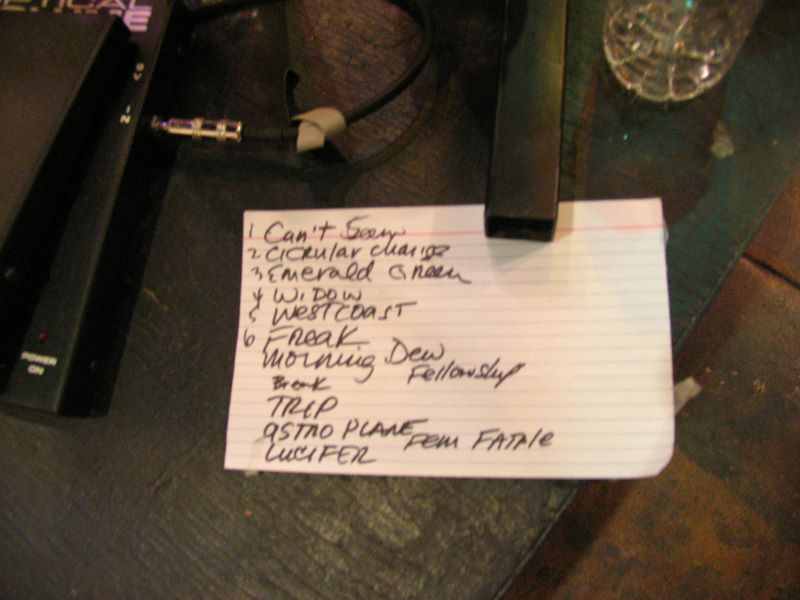 1 Can't Seem
2 Circular change
3 Emerald Green
4 WIDOW
5 WESTCOAST
6 FREAK
Morning Dew
Fellowship
Break
TRIP
ASTRO PLANE
Fem FATALE
LUCIFER
POWER
ON
IN